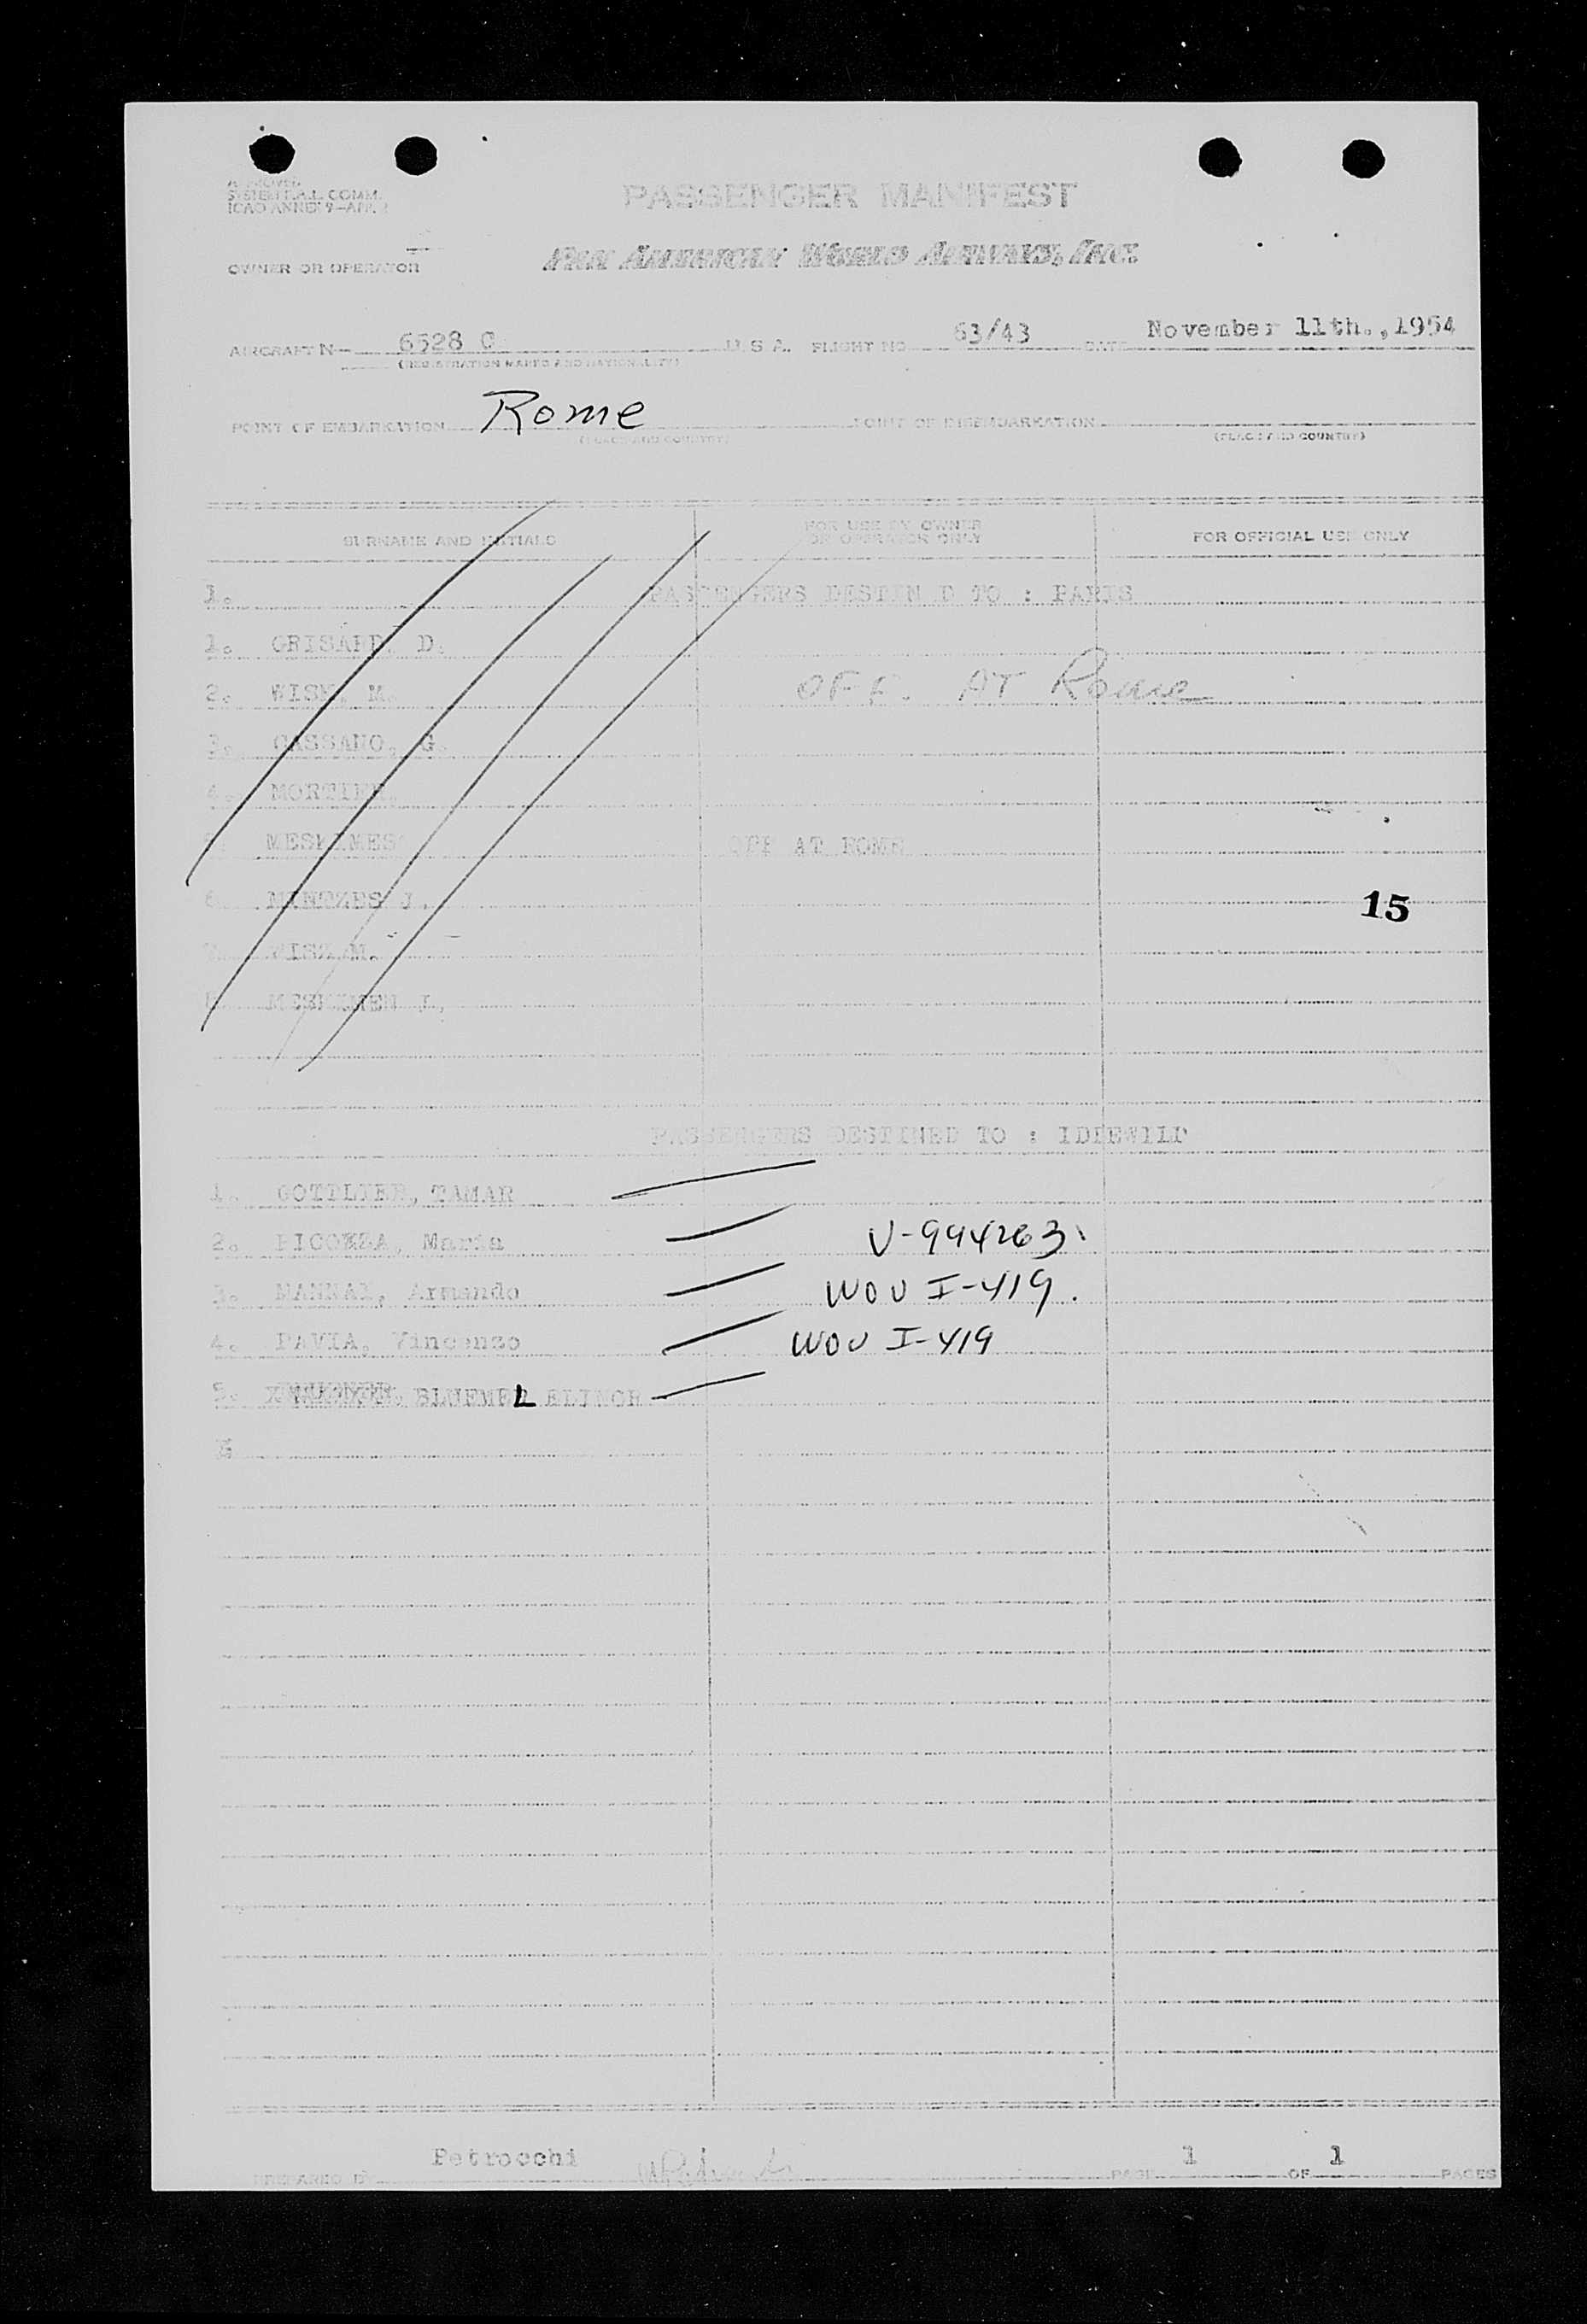 APPROVED
SYSTEM F.A.L. COMM.
ICAO ANNEX 9-APP.
PASSENGER MANIFEST
OWNER OR OPERATOR PAN AMERICAN WORLD AIRWAYS, INC.
AIRCRAFT N 6528 C U.S.A. FLIGHT NO 63/43 DATE November 11th.,1954
(REGISTRATION MARKS AND NATIONALITY)
POINT OF EMBARKATION Rome POINT OF DISEMBARKATION
(PLACE AND COUNTRY) (PLACE AND COUNTRY)
SURNAME AND INITIALS FOR USE BY OWNER OR OPERATOR ONLY FOR OFFICIAL USE ONLY
1. PASSENGERS DESTIN D TO : PARIS
1. GRISARD, D.
2. M. OFF. AT Rome
3. CASSANO, G.
4. MORTIER.
OFF AT ROME
6. J. 15
M.
PASSENGERS DESTINED TO : IDLEWILD
1. GOTTLIEB, TAMAR
2. Maria V-994263
3. MANNAI, Armando WOV I-419.
4. PAVIA, Vincenzo WOV I-419
5. BLUEMEL ELINOR
PREPARED BY Petrocchi PAGE 1 OF 1 PAGES